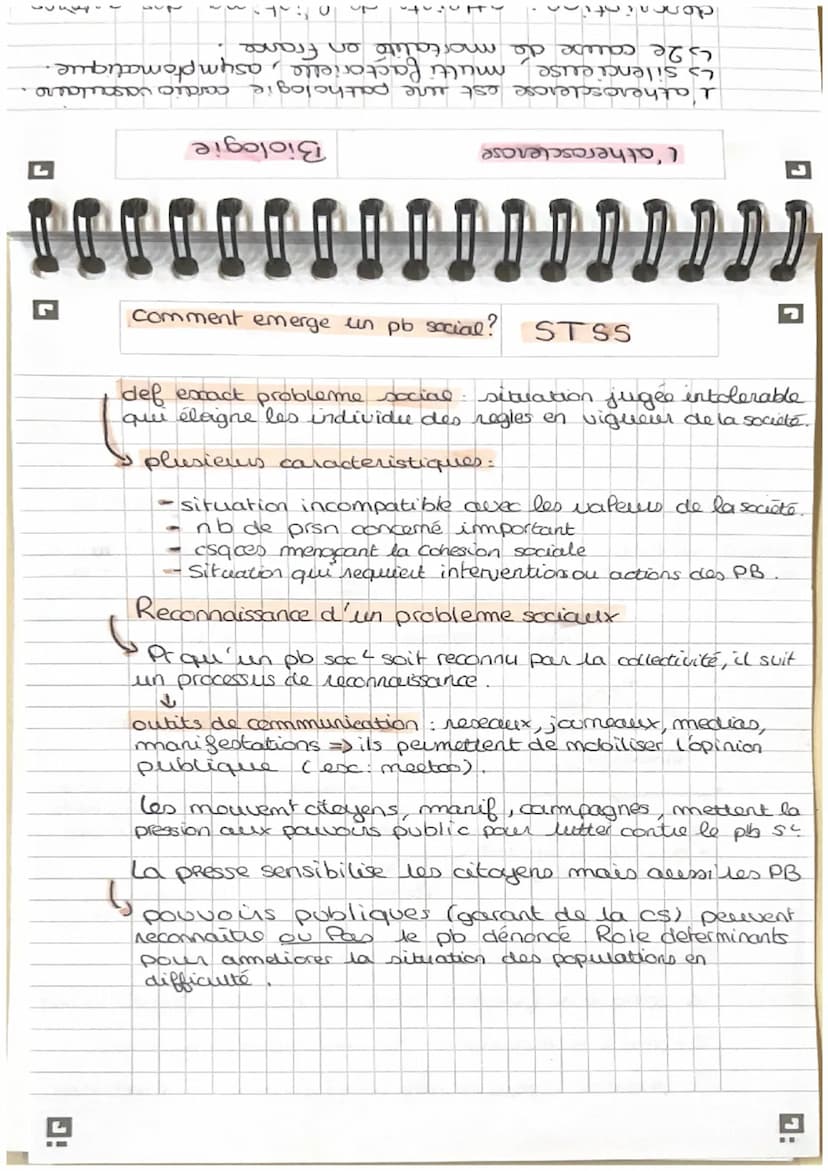 L'atherosclerose
Biologie
L'atherosclerose est une pathologie cardio vasculaire.
↳ silencieuse, multi factorielle, asymptomatique.
↳ 2e cause de mortalité en france.
Comment emerge un pb social?
STSS
def exact probleme social : situation jugée intolerable
qui éloigne les individu des regles en vigueur de la société.
plusieurs caracteristiques:
- situation incompatible avec les valeurs de la société.
- nb de prsn concerné important
- csqces menaçant la cohesion sociale
- Situation qui requiert interventions ou actions des PB.
Reconnaissance d'un probleme sociaux
Pr qu'un pb socL soit reconnu par la collectivité, il suit
un processus de reconnaissance.
↓
outils de communication : reseaux, journeaux, medias,
manifestations => ils permettent de mobiliser l'opinion
publique (ex: meetoo).
Les mouvemt citoyens, manif, campagnes, mettent la
pression aux pouvoirs public pour lutter contre le pb sL
La presse sensibilise les citoyens mais aussi les PB
pouvoirs publiques (garant de la CS) peuvent
reconnaître ou Pas le pb dénoncé. Role determinants
pour ameliorer la situation des populations en
difficulté.